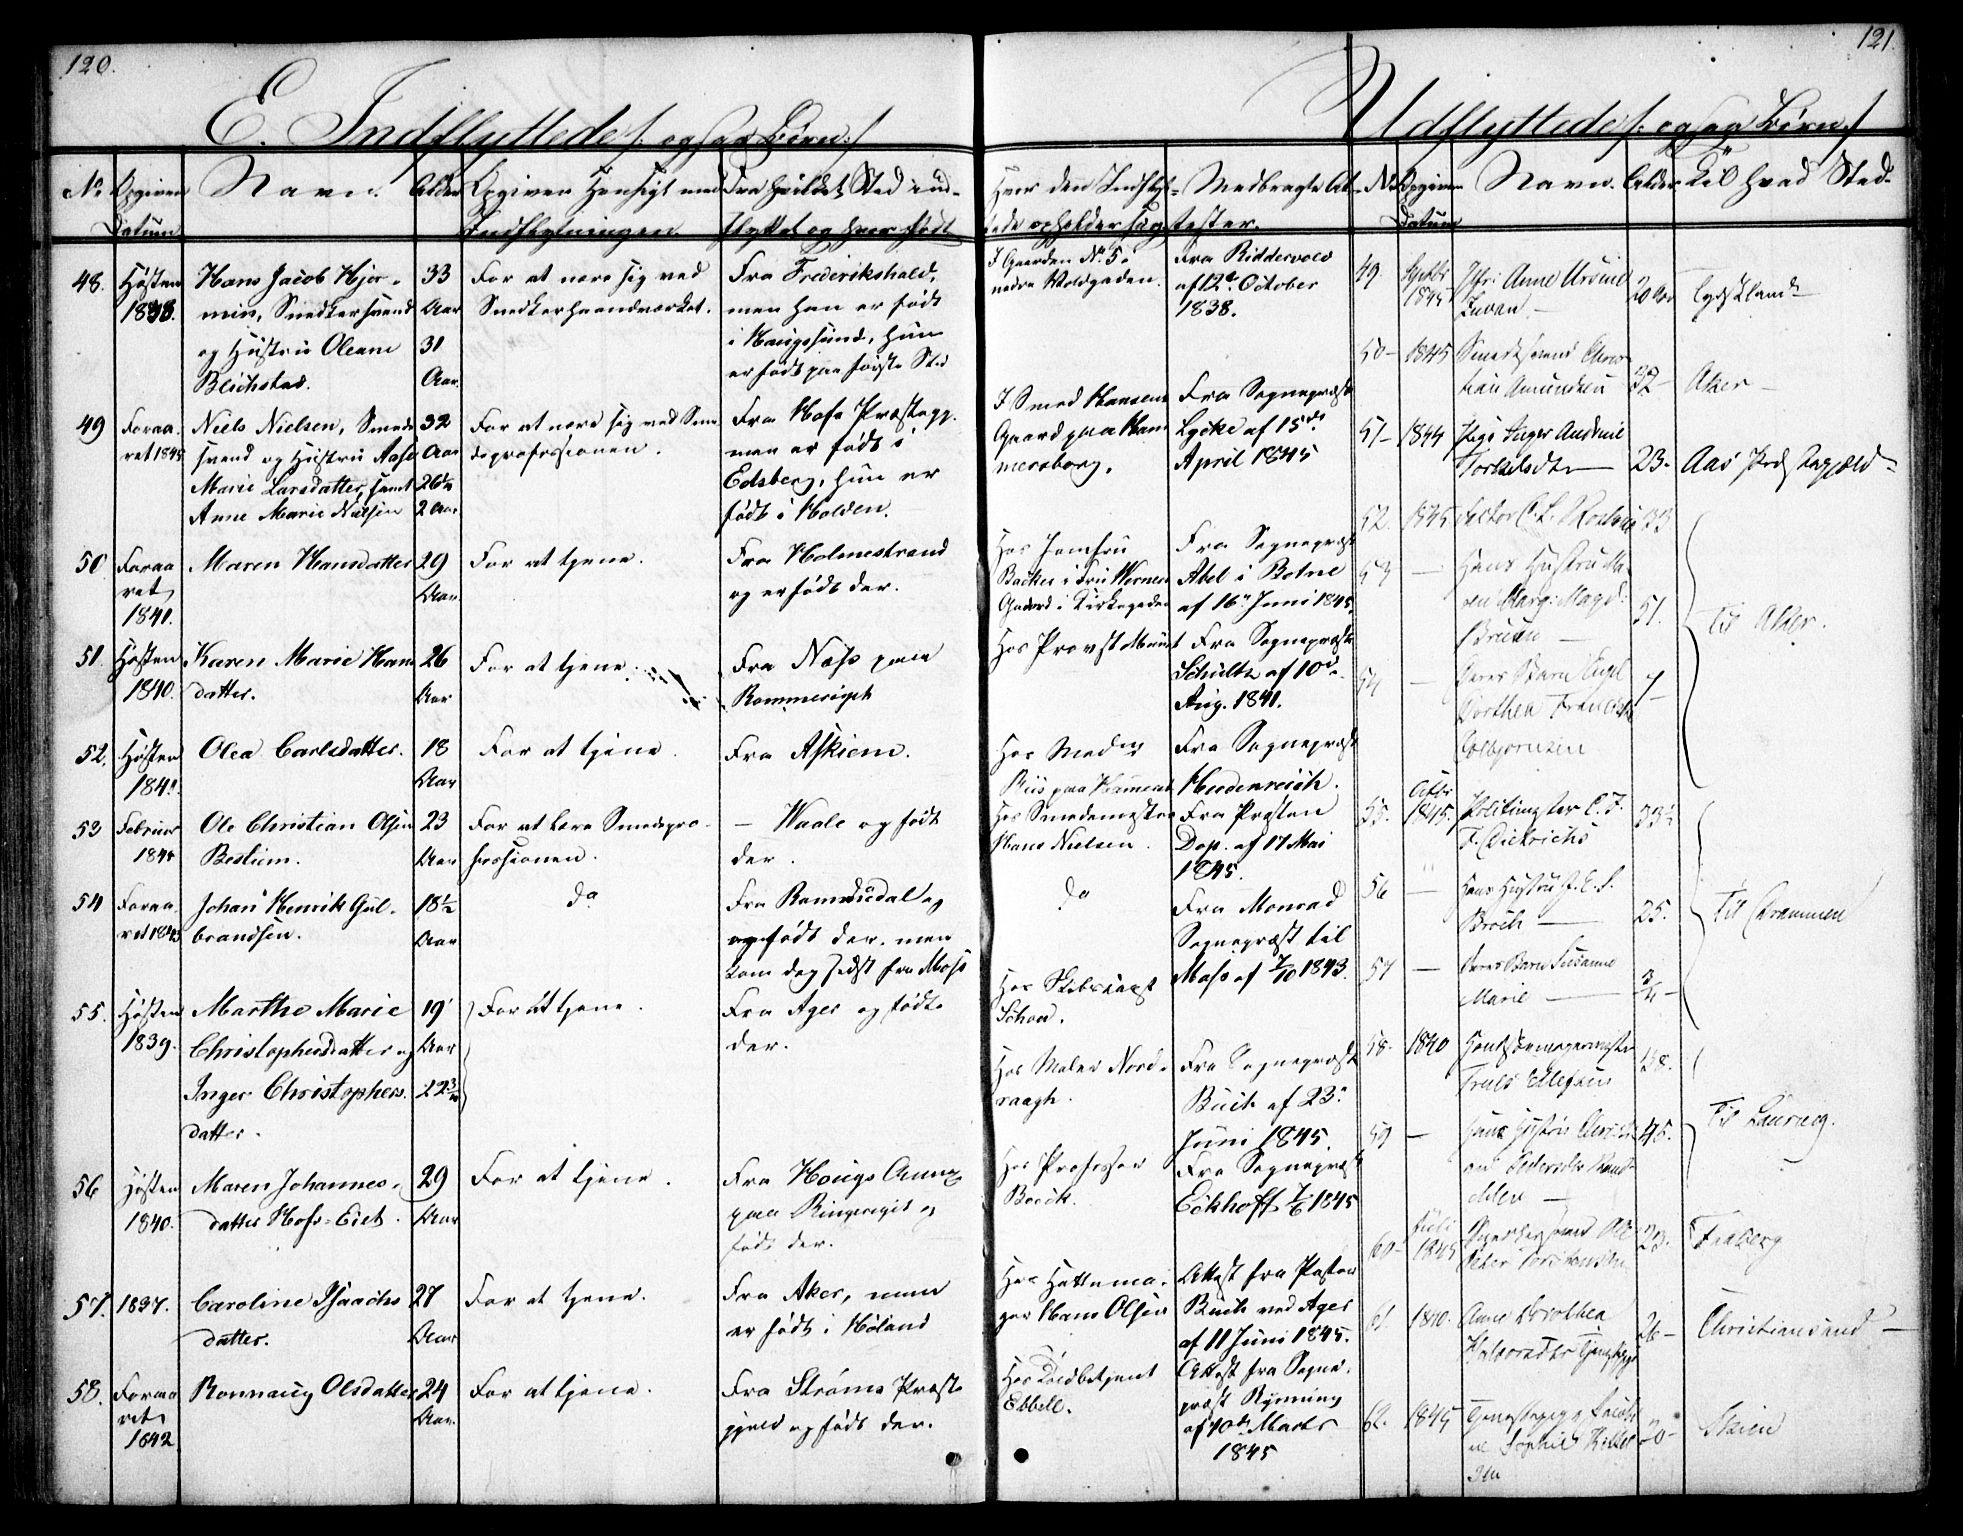 120.
E. Indflyttede /: ogsaa Børn :/
No
Opgiven
Datum
Navn.
Alder
Opgiven Hensigt med
Indflytningen.
Fra hvilket Sted ind-
flyttet og hvor født
Hvor den Indflyt-
tede opholder sig
Medbragte At-
tester.
48.
Høsten
1838.
Hans Jacob Hjor-
min, Snedkersvend
og Hustru Oleane
Blichstad.
33
Aar
31
Aar.
For at nære sig ved
Snedkerhaandværket.
Fra Frederikshald,
men han er født
i Haugsund, hun
er født paa første Sted
I Gaarden No 5 i
nedre Voldgaden.
Fra Riddervold
af 12te October
1838.
49
Foraa-
ret 1845
Niels Nielsen, Smede
svend og Hustru Aase
Marie Larsdatter, samt
Anne Marie Nielsen
32
Aar
26½
2 Aar
For at nære sig ved Sme
deprofessionen.
Fra Hofs Præstegj.
men er født i
Edsberg, hun er
født i Holden.
I Smed Hansens
Gaard paa Ham
mersborg.
Fra Sognepræst
Lycke af 15de
April 1845
50
Foraa
ret
1841.
Maren Hansdatter
29
Aar.
For at tjene.
Fra Holmestrand
og er født der.
Hos Jomfru
Backer i Fru Wernes
Gaard i Kirkegaden
Fra Sognepræst
Abel i Botne
af 16de Juni 1845.
51.
Høsten
1840.
Karen Marie Hans
datter.
26
Aar
For at tjene.
Fra Næs paa
Rommeriget
Hos Provst Münst
Fra Sognepræst
Schultz af 10de
Aug. 1841.
52.
Høsten
Olea Carlsdatter.
18
Aar
For at tjene.
Fra Askiem.
Hos Mad
Riis paa Hammersb
Fra Sognepræst
Heidenreich.
53
Februar
Ole Christian Olsen
Bestum.
23
Aar
For at lære Smedepro-
fessionen.
— Waale og født
der.
Hos Smedemester
Hans Nielsen.
Fra Præsten
Dop. af 17 Mai
1845.
54
Foraa
ret 1845
Johan Henrik Gul-
brandsen.
18½
Aar
do
Fra Romsdal og
og født der, men
kom dog sidst fra Moss
do
Fra Monrad
Sognepræst til
Moss af 7/10 1843.
55.
Høsten
1839.
Marthe Marie
Christophersdatter og
Inger Christophers.
datter.
19
Aar
22
For at tjene.
Fra Ager og fødte
der.
Hos Skibscapt
Schou.
Hos Maler Nord-
raagh.
Fra Sognepræst
Buch af 23de
Juni 1845.
56
Høsten
1840.
Maren Johannes-
datter Hofs-Eiet.
29
Aar
For at tjene.
Fra Hougs Annex
paa Ringerigit og
født der.
Hos Professor
Boeck.
Fra Sognepræst
Eckhoff 7/6 1845
57.
1837.
Caroline Isaachs
datter.
27
Aar
For at tjene.
Fra Aker, men
er født i Høland
Hos Hattema-
ger Hans Olsen
Attest fra Pastor
Buch ved Ager
af 11 Juni 1845.
58.
Foraa
ret
1842
Ronnaug Olsdatter
24
Aar.
For at tjene.
Fra Strøms Præste
gjeld og født der.
Hos Toldbetjent
Ebbell.
Attest fra Sogne-
præst Rynning
af 10de Marts
1845
121
Udflyttede /: ogsaa Børn :/
No
Opgiven
Datum
Navn.
Alder
Til hvad Sted.
49
1845
Jfr: Anne Ursine
20 Aar
Tydskland
50-
1845
Smedesvend Chris-
tian Amundsen
32
Aker
51-
1844
Pige Inger Andrine
Torkelsdtr
23.
Aas Præstegjæld
52.
1845
33
53
—
Hans Hustru Ma-
ren Marg: Magd:
Bruun
51.
Til Aker.
54
—
Deres Barn
Dorthea
7
55.
1845.
Politimester C. F.
F. Dietrichs
33½
56
—
Hans Hustru J. E. S.
Broch
25.
Til Drammen
57
—
Deres Barn Susanne
Marie
¾
58-
1840
Handskemagermester
Truls Ellefsen
38.
59
—
Hans Hustru
45.
Til Laurvig.
60-
Juli
1845
Snedkersvend Ole
Peter
23.
61.
1840.
Anne Dorothea
Halvorsdtr Tjenestepige
26
Christiansand
62.
1845
Tjenestepige Jacob
ne Sophie
20-
Skien